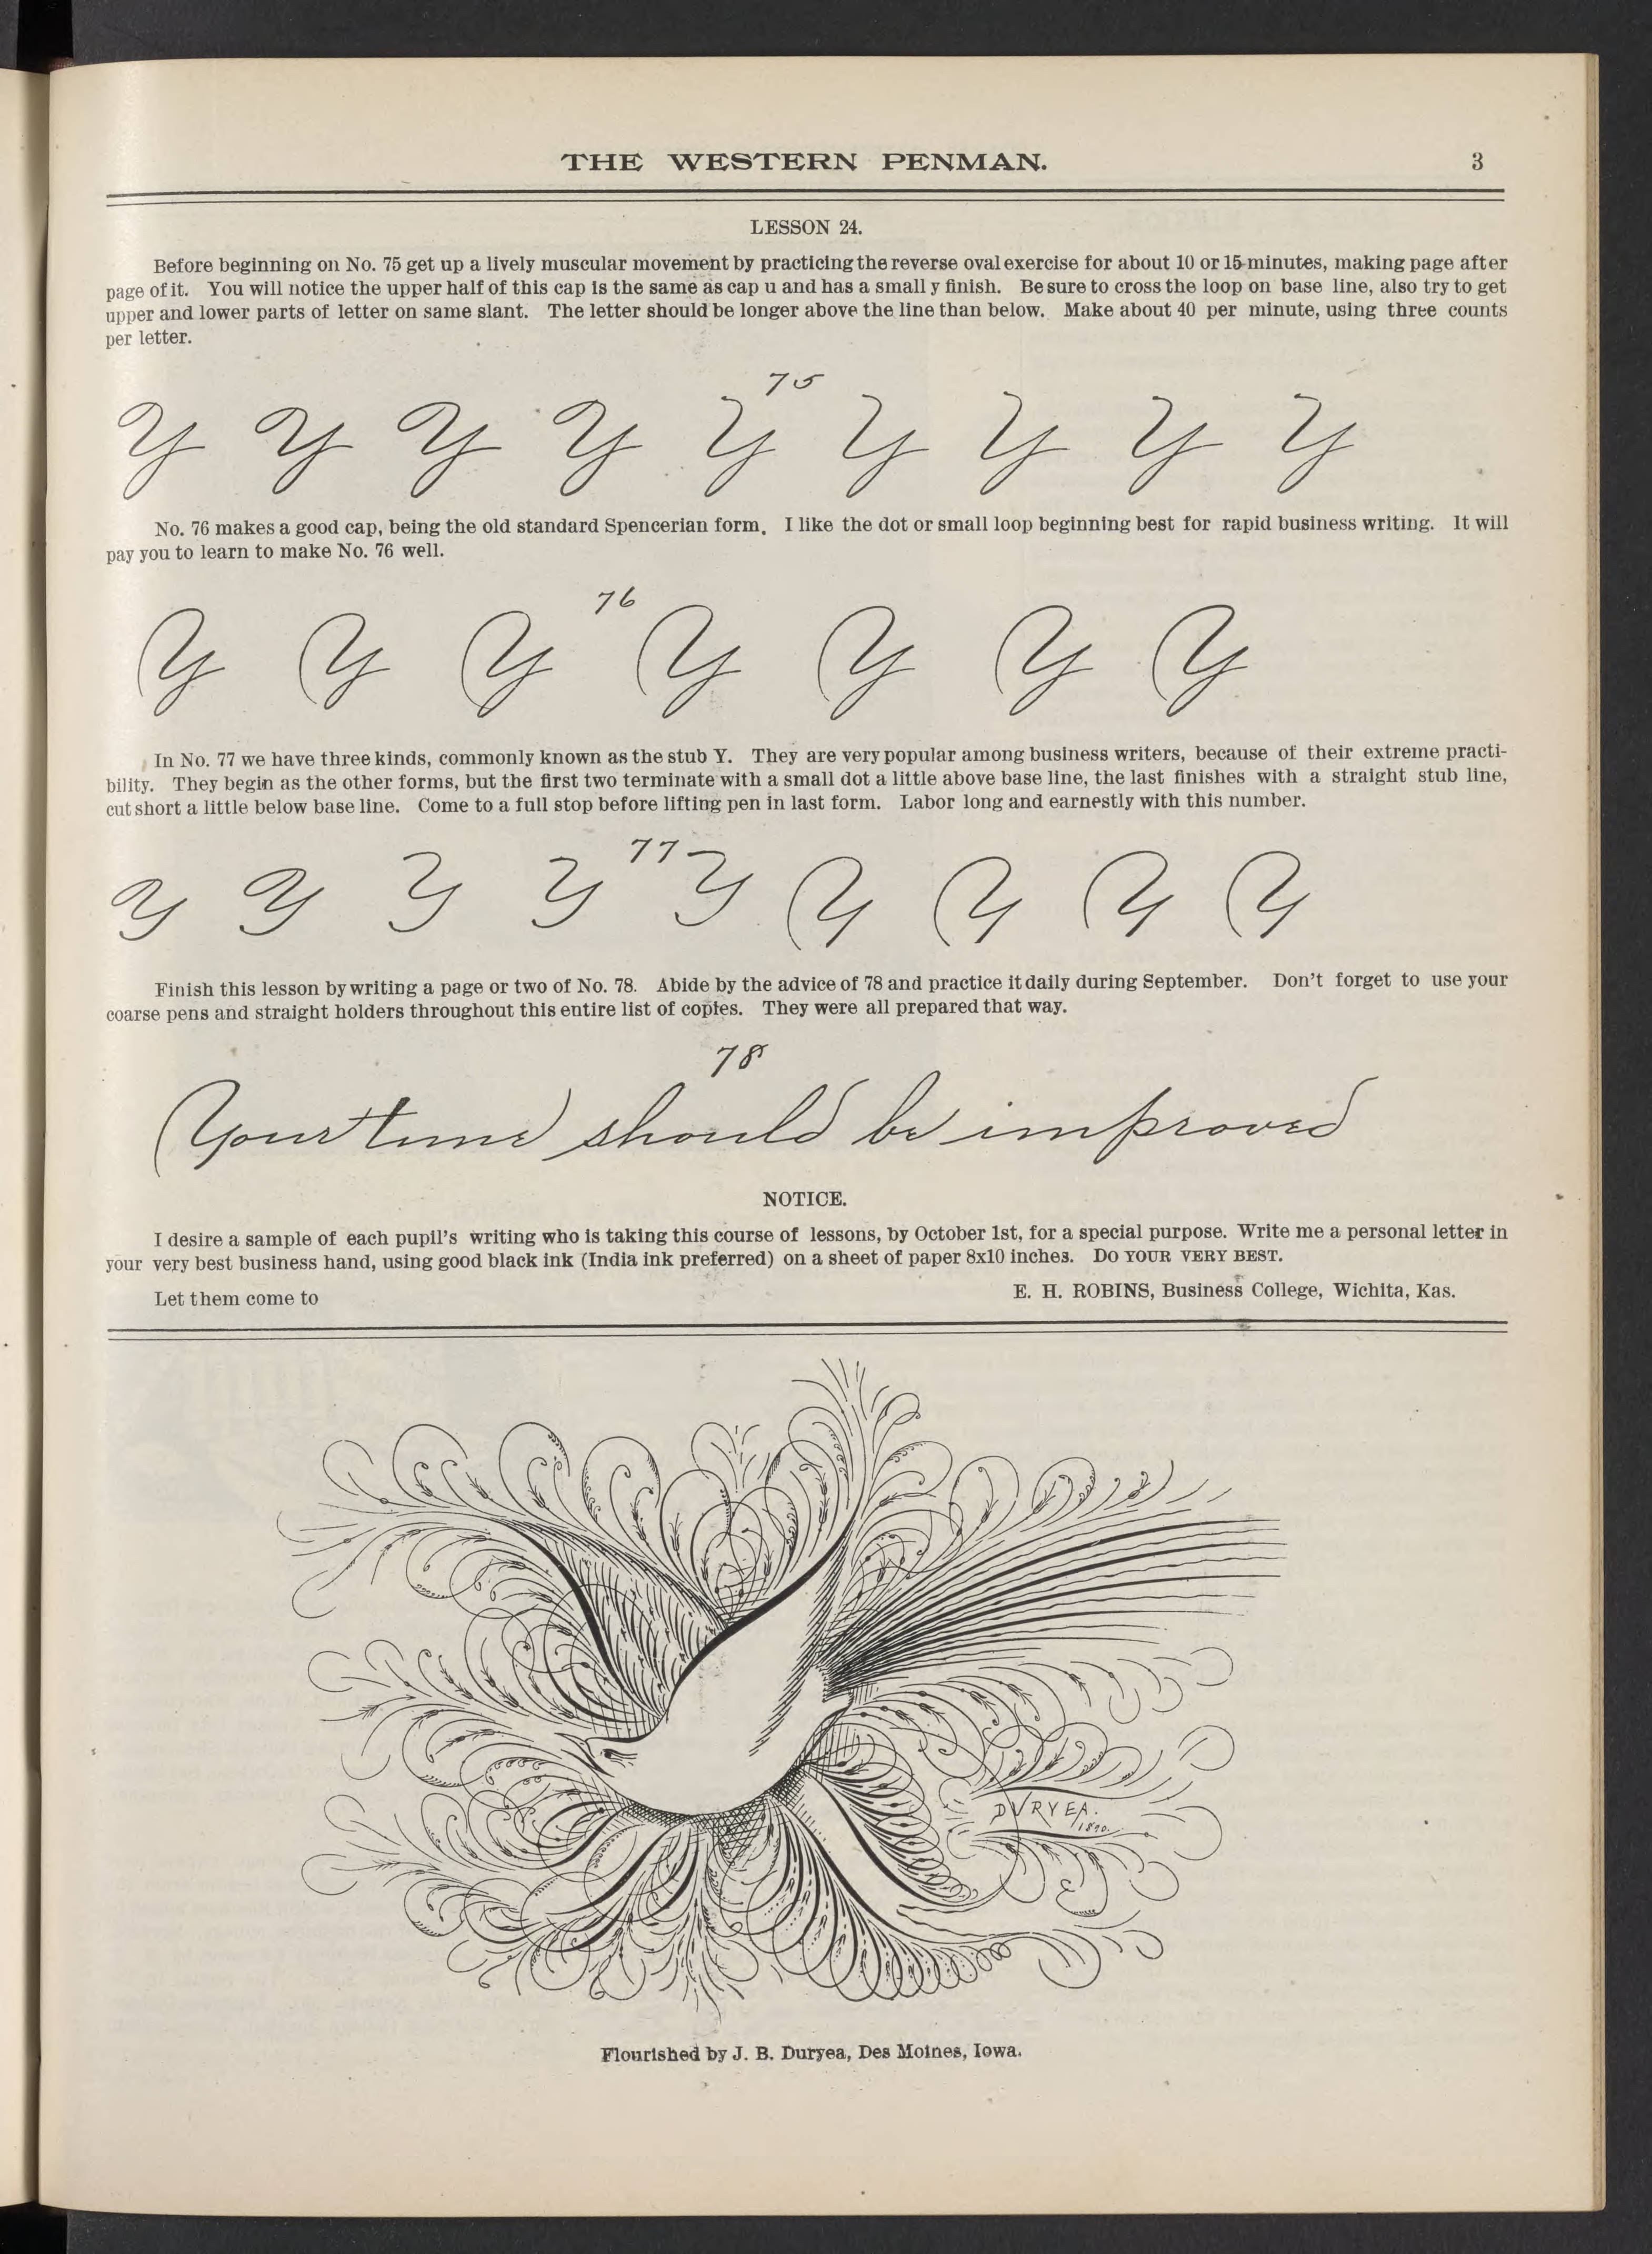 THE WESTERN PENMAN. 3
LESSON 24.
Before beginning on No. 75 get up a lively muscular movement by practicing the reverse oval exercise for about 10 or 15 minutes, making page after
page of it. You will notice the upper half of this cap is the same as cap u and has a small y finish. Be sure to cross the loop on base line, also try to get
upper and lower parts of letter on same slant. The letter should be longer above the line than below. Make about 40 per minute, using three counts
per letter.
75
Y Y Y Y Y Y Y Y Y
No. 76 makes a good cap, being the old standard Spencerian form. I like the dot or small loop beginning best for rapid business writing. It will
pay you to learn to make No. 76 well.
76
Y Y Y Y Y Y Y
In No. 77 we have three kinds, commonly known as the stub Y. They are very popular among business writers, because of their extreme practi-
bility. They begin as the other forms, but the first two terminate with a small dot a little above base line, the last finishes with a straight stub line,
cut short a little below base line. Come to a full stop before lifting pen in last form. Labor long and earnestly with this number.
77
Y Y Y Y Y Y Y Y Y
Finish this lesson by writing a page or two of No. 78. Abide by the advice of 78 and practice it daily during September. Don't forget to use your
coarse pens and straight holders throughout this entire list of copies. They were all prepared that way.
78
Your time should be improved
NOTICE.
I desire a sample of each pupil's writing who is taking this course of lessons, by October 1st, for a special purpose. Write me a personal letter in
your very best business hand, using good black ink (India ink preferred) on a sheet of paper 8x10 inches. DO YOUR VERY BEST.
Let them come to E. H. ROBINS, Business College, Wichita, Kas.
DURYEA.
1890.
Flourished by J. B. Duryea, Des Moines, Iowa.